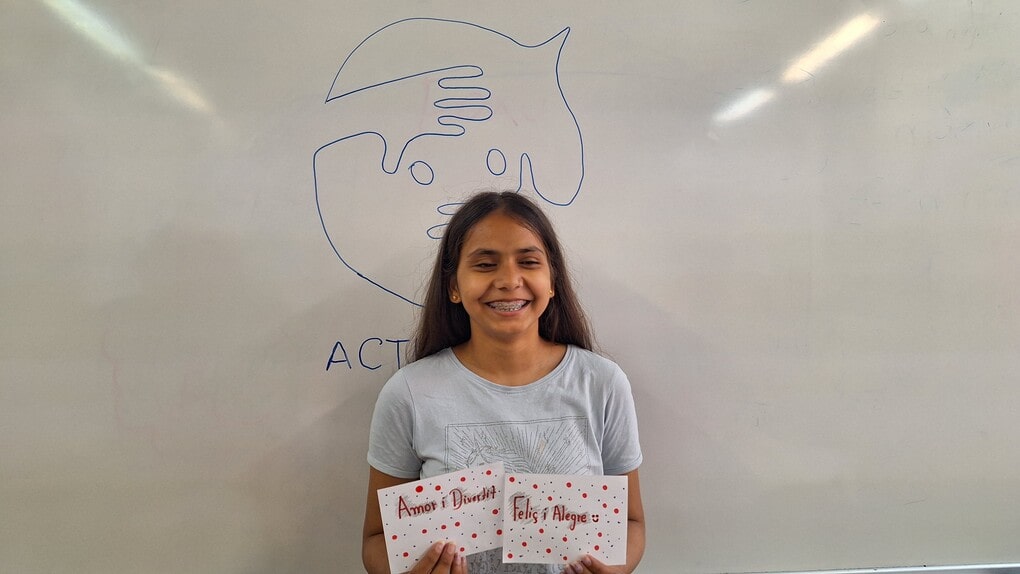 ACT
Amor i Divertit
Feliç i Alegre